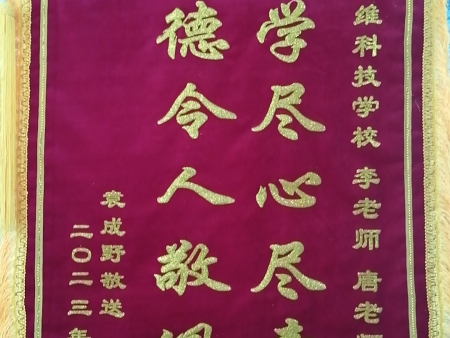 维科技学校 李老师 唐老师
学尽心尽
德令人敬
袁成野敬送
二〇二三年